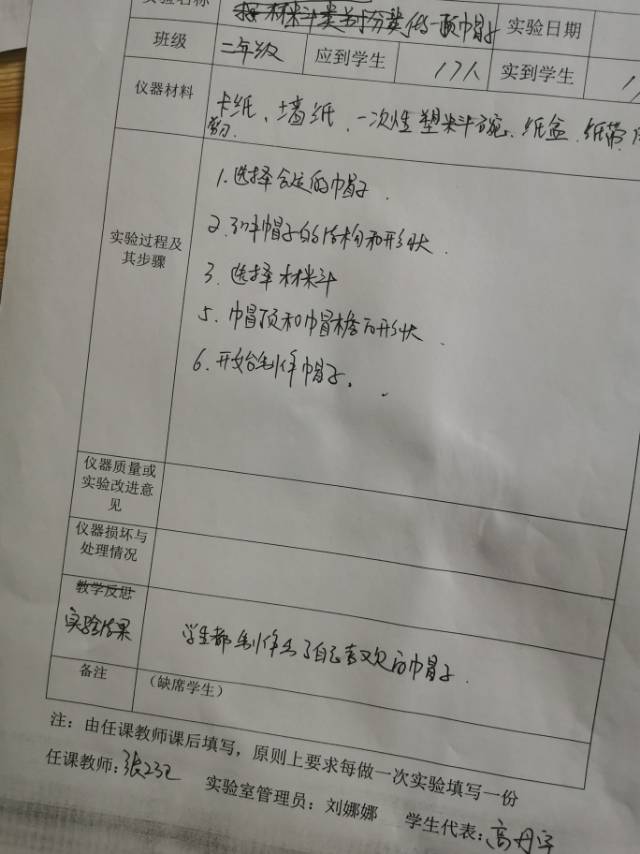 实验名称 做一顶帽子 实验日期
班级 二年级 应到学生 17人 实到学生
仪器材料 卡纸、墙纸、一次性塑料碗、纸盒、纸带
剪刀
实验过程及其步骤
1.选择合适的帽子.
2.观察帽子的结构和形状.
3.选择材料
5.帽顶和帽檐的形状.
6.开始制作帽子.
仪器质量或
实验改进意
见
仪器损坏与
处理情况
教学反思
实验结果 学生都制作出了自己喜欢的帽子.
备注 （缺席学生）
注：由任课教师课后填写，原则上要求每做一次实验填写一份
任课教师: 实验室管理员：刘娜娜 学生代表: